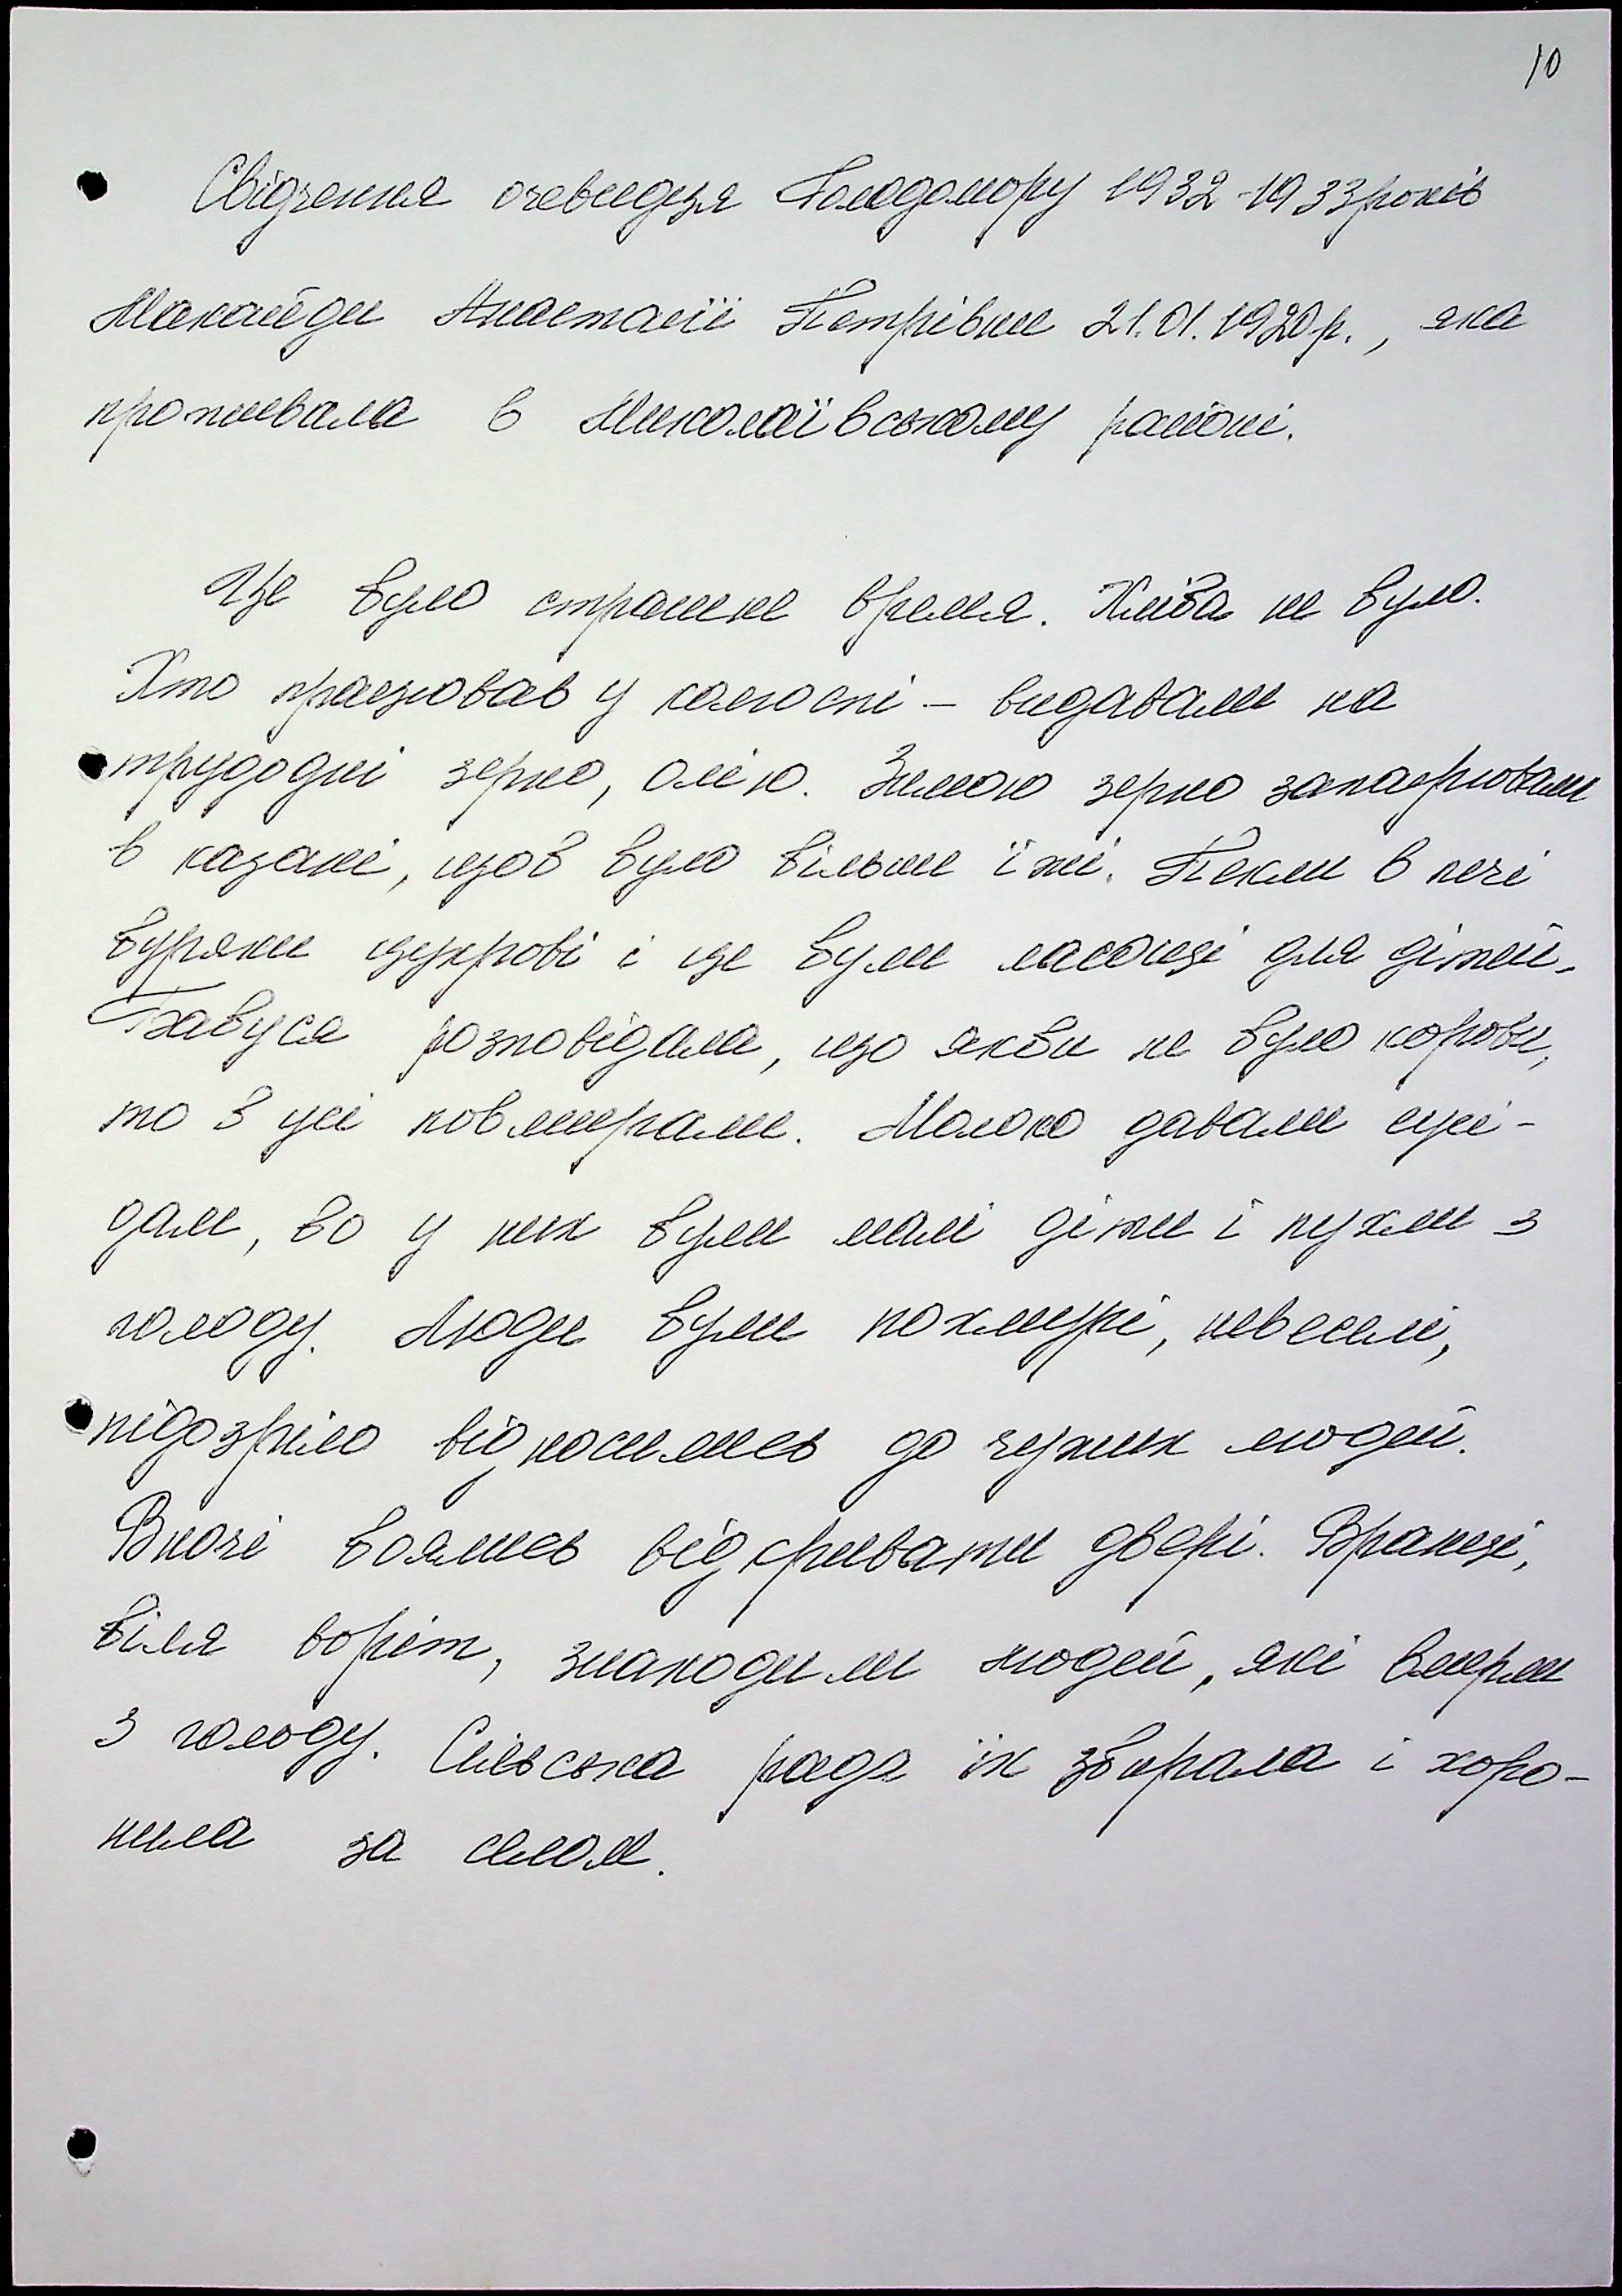 10
Свідчення очевидця Голодомору 1932-1933 років
Макайди Анастасії Петрівни 21.01.1920 р., яка
проживала в Миколаївському районі.
Це було страшне время. Хліба не було.
Хто працював у колгоспі – видавали на
трудодні зерно, олію. Зимою зерно запарювали
в казані, щоб було більше їжі. Пекли в печі
буряки цукрові і це були ласощі для дітей.
Бабуся розповідала, що якби не було корови,
то б усі повмирали. Молоко давали сусі-
дам, бо у них були малі діти і пухли з
голоду. Люди були похмурі, невеселі,
підозріло відносились до чужих людей.
Вночі боялись відкривати двері. Вранці,
біля воріт, знаходили людей, які вмерли
з голоду. Сільська рада їх збирала і хоро-
нила за селом.